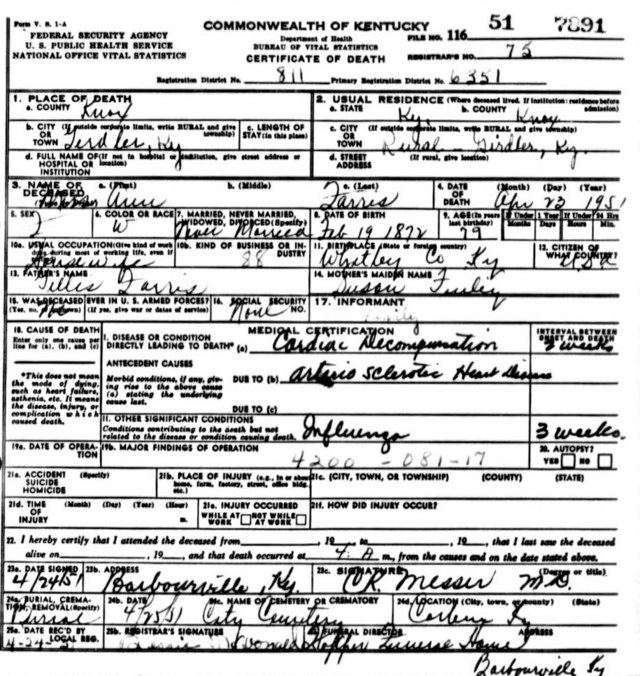 Form V. S. 1-A
FEDERAL SECURITY AGENCY
U. S. PUBLIC HEALTH SERVICE
NATIONAL OFFICE VITAL STATISTICS
COMMONWEALTH OF KENTUCKY
Department of Health
BUREAU OF VITAL STATISTICS
CERTIFICATE OF DEATH
FILE NO. 116 51 7891
REGISTRAR'S NO. 75
Registration District No. 811 Primary Registration District No. 6351
1. PLACE OF DEATH
a. COUNTY Knox
b. CITY (If outside corporate limits, write RURAL and give township) OR TOWN Girdler, Ky
c. LENGTH OF STAY (in this place)
d. FULL NAME OF (If not in hospital or institution, give street address or location) HOSPITAL OR INSTITUTION
2. USUAL RESIDENCE (Where deceased lived. If institution: residence before admission)
a. STATE Ky. b. COUNTY Knox
c. CITY (If outside corporate limits, write RURAL and give township) OR TOWN Rural - Girdler, Ky.
d. STREET ADDRESS (If rural, give location)
3. NAME OF DECEASED a. (First) Ann b. (Middle) c. (Last) Farris
4. DATE OF DEATH (Month) (Day) (Year) Apr 23 1951
5. SEX F
6. COLOR OR RACE W
7. MARRIED, NEVER MARRIED, WIDOWED, DIVORCED (Specify) Never Married
8. DATE OF BIRTH Feb 19 1872
9. AGE (In years last birthday) 79 If Under 1 Year If Under 24 Hrs
10a. USUAL OCCUPATION (Give kind of work done during most of working life, even if retired) Housewife
10b. KIND OF BUSINESS OR INDUSTRY 88
11. BIRTHPLACE (State or foreign country) Whitley Co Ky
12. CITIZEN OF WHAT COUNTRY? USA
13. FATHER'S NAME Farris
14. MOTHER'S MAIDEN NAME Finley
15. WAS DECEASED EVER IN U. S. ARMED FORCES? (Yes, no, or unknown) (If yes, give war or dates of service) No
16. SOCIAL SECURITY NO. None
17. INFORMANT
18. CAUSE OF DEATH
Enter only one cause per line for (a), (b), and (c)
*This does not mean the mode of dying, such as heart failure, asthenia, etc. It means the disease, injury, or complication which caused death.
MEDICAL CERTIFICATION
INTERVAL BETWEEN ONSET AND DEATH
I. DISEASE OR CONDITION DIRECTLY LEADING TO DEATH* (a) Cardiac Decompensation 3 weeks
ANTECEDENT CAUSES
Morbid conditions, if any, giving rise to the above cause (a) stating the underlying cause last.
DUE TO (b) arterio sclerotic Heart Disease
DUE TO (c)
II. OTHER SIGNIFICANT CONDITIONS
Conditions contributing to the death but not related to the disease or condition causing death. Influenza 3 weeks.
19a. DATE OF OPERATION
19b. MAJOR FINDINGS OF OPERATION
4200 - 081-17
20. AUTOPSY? YES NO
21a. ACCIDENT SUICIDE HOMICIDE (Specify)
21b. PLACE OF INJURY (e.g., in or about home, farm, factory, street, office bldg. etc.)
21c. (CITY, TOWN, OR TOWNSHIP) (COUNTY) (STATE)
21d. TIME OF INJURY (Month) (Day) (Year) (Hour) m.
21e. INJURY OCCURRED WHILE AT WORK NOT WHILE AT WORK
21f. HOW DID INJURY OCCUR?
22. I hereby certify that I attended the deceased from , 19 to , 19 , that I last saw the deceased
alive on , 19 , and that death occurred at 4: A m., from the causes and on the date stated above.
23a. DATE SIGNED 4/24/51
23b. ADDRESS Barbourville, Ky.
23c. SIGNATURE (Degree or title) Messer M.D.
24a. BURIAL, CREMATION, REMOVAL (Specify) Burial
24b. DATE 4/25/51
24c. NAME OF CEMETERY OR CREMATORY City Cemetery
24d. LOCATION (City, town, or county) (State) Corbin Ky
25a. DATE REC'D BY LOCAL REG. 4-24-51
25b. REGISTRAR'S SIGNATURE
FUNERAL DIRECTOR Hopper Funeral Home
ADDRESS Barbourville Ky